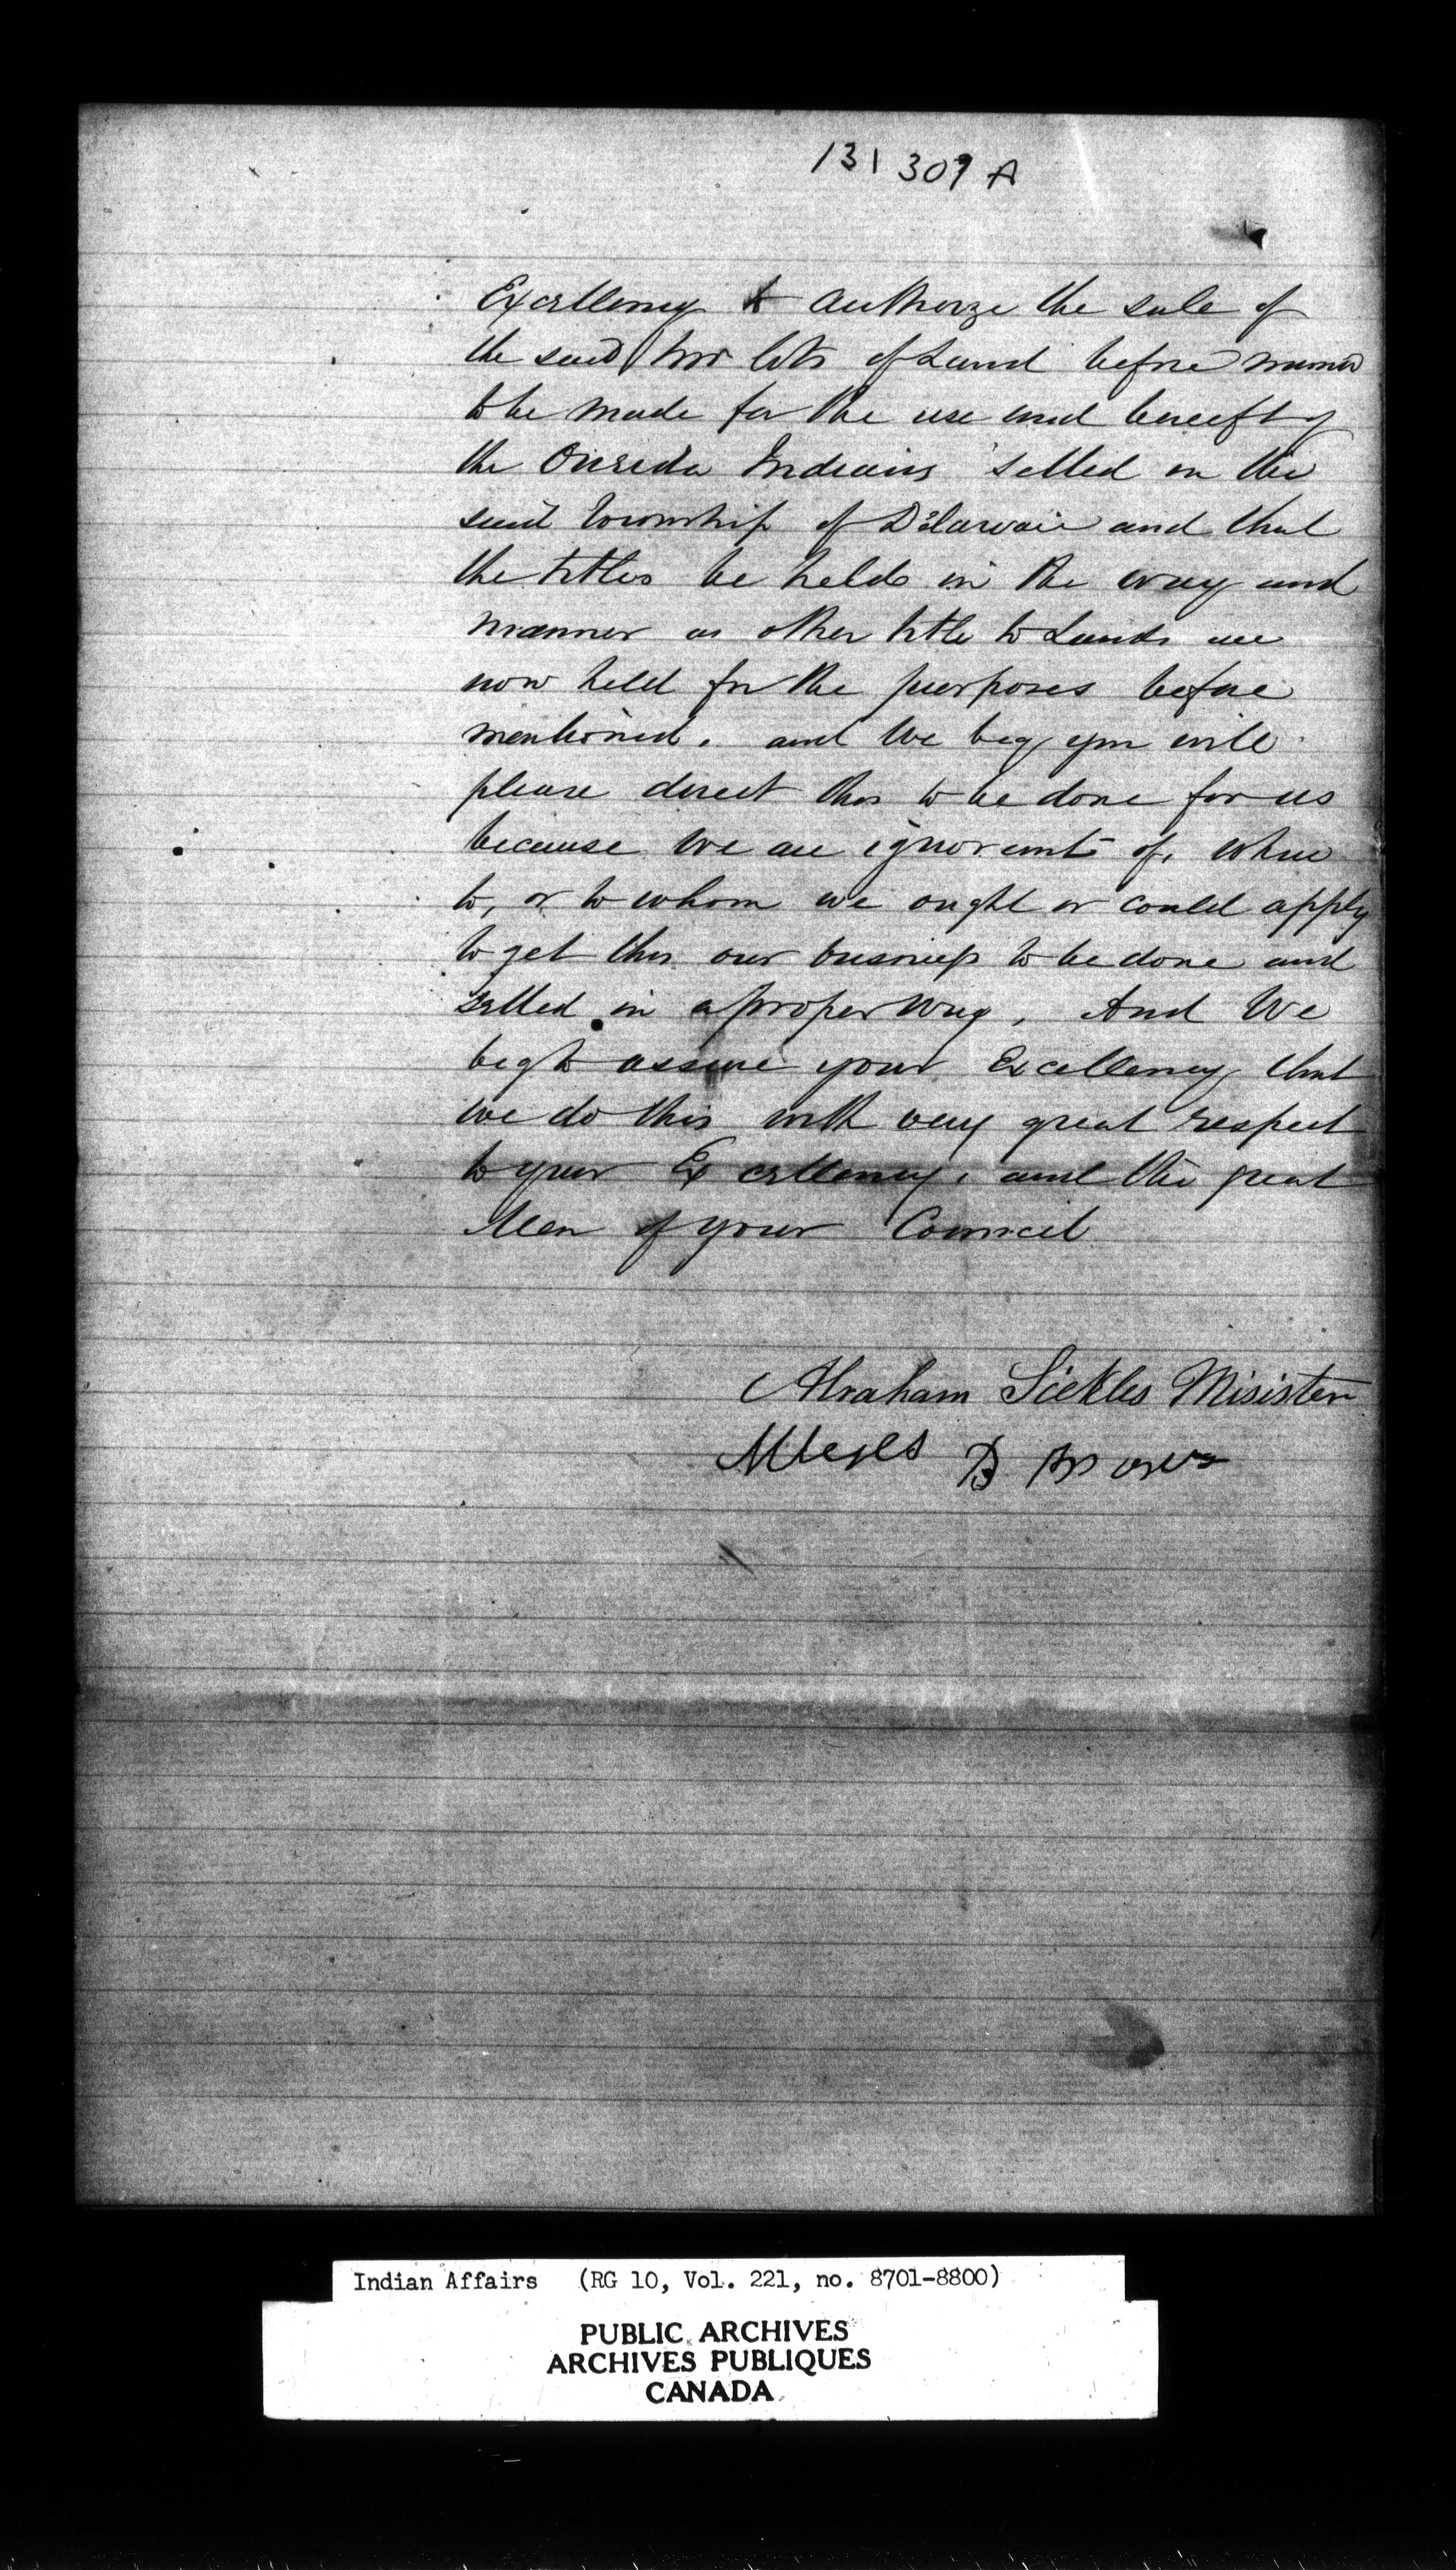 131 309 A
Excellency to authorize the sale of
the said two lots of Land before named
to be made for the use and benefit of
the Oneida Indians settled in the
said Township of Delaware and that
the titles be held in the way and
manner as other title to Lands are
now held for the purposes before
mentioned. and we beg you will
please direct this to be done for us
because we are ignorant of, where
to, or to whom we ought or could apply
to get this our business to be done and
settled in a proper way, And We
beg to assure your Excellency that
we do this with very great respect
to your Excellency, and the great
Men of your Council
Abraham Sickles Misister
B
Indian Affairs (RG 10, Vol. 221, no. 8701-8800)
PUBLIC ARCHIVES
ARCHIVES PUBLIQUES
CANADA